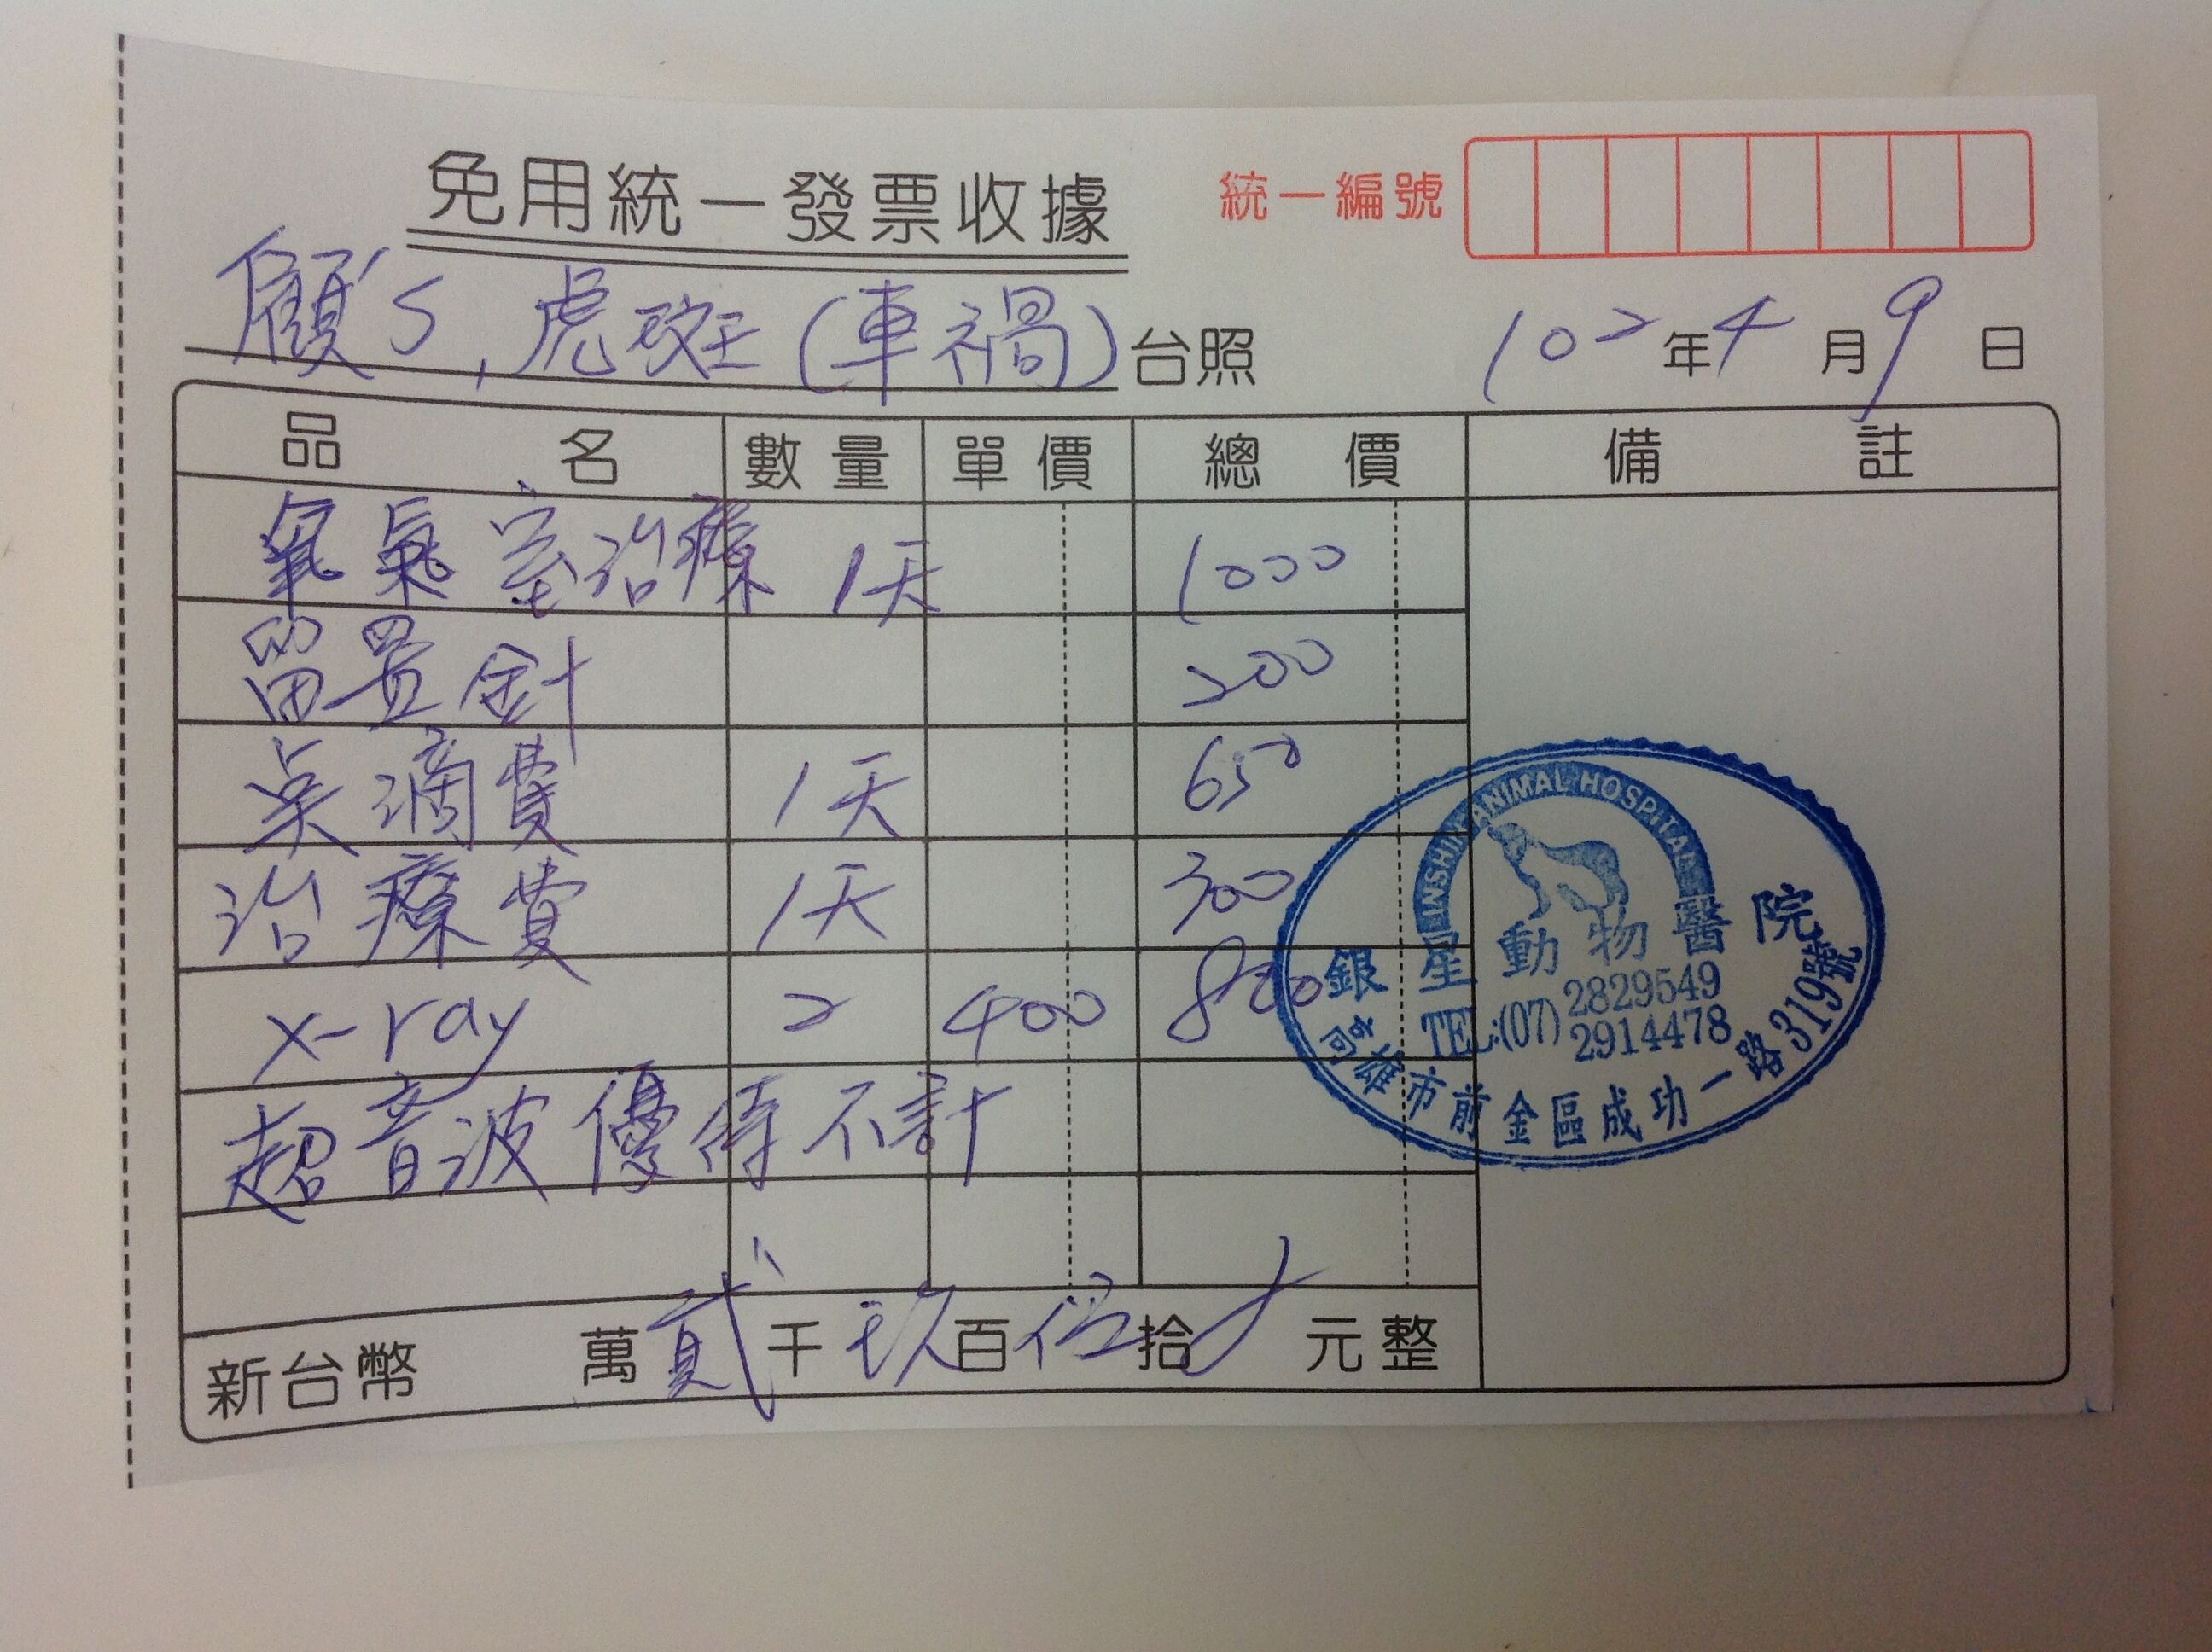 免用統一發票收據
統一編號
顧's, 虎斑(車禍)台照
102年4月9日
品名 數量 單價 總價 備註
氧氣室治療 1天 1000
留置針 200
点滴費 1天 650
治療費 1天 300
x-ray 2 400 800
超音波優待不計
新台幣 萬貳千玖百伍拾 元整
INSHIN ANIMAL HOSPITAL
銀星動物醫院
TEL:(07) 2829549
2914478
高雄市前金區成功一路319號